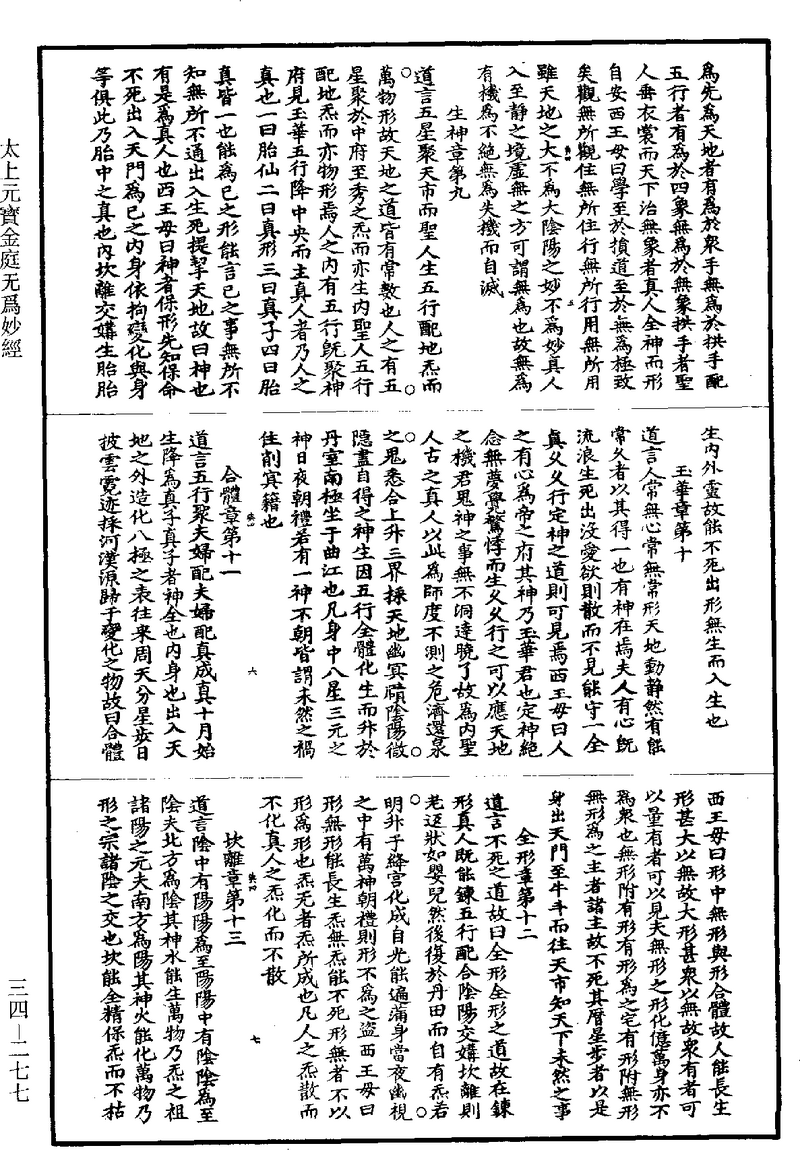 太上元寶金庭无爲妙經
三四—二七七
爲先爲天地者有爲於衆手無爲於拱手配
五行者有爲於四象無爲於無象拱手者聖
人垂衣裳而天下治無象者真人全神而形
自安西王母曰學至於損道至於無爲極致
矣觀無所觀住無所住行無所行用無所用
雖天地之大不爲大陰陽之妙不爲妙真人
入至靜之境虛無之方可謂無爲也故無爲
有機爲不絶無爲失機而自滅
生神章第九
道言五星聚天市而聖人生五行配地炁而
萬物形故天地之道皆有常數也人之有五
星聚於中府至秀之炁而亦生内聖人五行
配地炁而亦物形焉人之内有五行既聚神
府見玉華五行降中央而主真人者乃人之
真也一曰胎仙二曰真形三曰真子四曰胎
真皆一也能爲已之形能言已之事無所不
知無所不通出入生死提挈天地故曰神也
有是爲真人也西王母曰神者保形先知保命
不死出入天門爲已之内身依拘變化與身
等俱此乃胎中之真也内坎離交媾生胎胎
生内外靈故能不死出形無生而入生也
玉華章第十
道言人常無心常無常形天地動静然有能
常久者以其得一也有神在焉夫人有心既
流浪生死出没愛欲則散而不見能守一全
真久久行定神之道則可見焉西王母曰人
之有心爲帝之府其神乃玉華君也定神絶
念無夢覺驚悸而生久久行之可以應天地
之機君鬼神之事無不洞達曉了故爲内聖
人古之真人以此爲師度不測之危濟還泉
之鬼悉合上升三界採天地幽冥賾陰陽微
隱盡自得之神生因五行全體化生而升於
丹室南極坐于曲江也凡身中八星三元之
神日夜朝禮若有一神不朝皆謂未然之禍
住削宾籍也
合體章第十一
六
道言五行聚夫婦配夫婦配真成真十月始
生降爲真子真子者神全也内身也出入天
地之外造化八極之表往来周天分星步日
披雲霓迹採河漢源歸于變化之物故曰合體
西王母曰形中無形與形合體故人能長生
形甚大以無故大形甚衆以無故衆有者可
以量有者可以見夫無形之形化億萬身亦不
爲衆也無形附有形有形爲之宅有形附無形
無形爲之主者諸主故不死其曆星步者以是
身出天門至牛斗而往天市知天下未然之事
全形章第十二
道言不死之道故曰全形全形之道故在鍊
形真人既能鍊五行配合陰陽交媾坎離則
老返狀如嬰兒然後復於丹田而自有炁若
明升于絳宫化成自光能遍滿身當夜幽視
之中有萬神朝禮則形不爲之盗西王母曰
形無形能長生炁無炁能不死形無者不以
形爲形也炁无者炁所成也凡人之炁散而
不化真人之炁化而不散
坎離章第十三
七
道言陰中有陽陽爲至陽陽中有陰陰爲至
陰夫北方爲陰其神水能生萬物乃炁之祖
諸陽之元夫南方爲陽其神火能化萬物乃
形之宗諸陰之交也坎能全精保炁而不枯